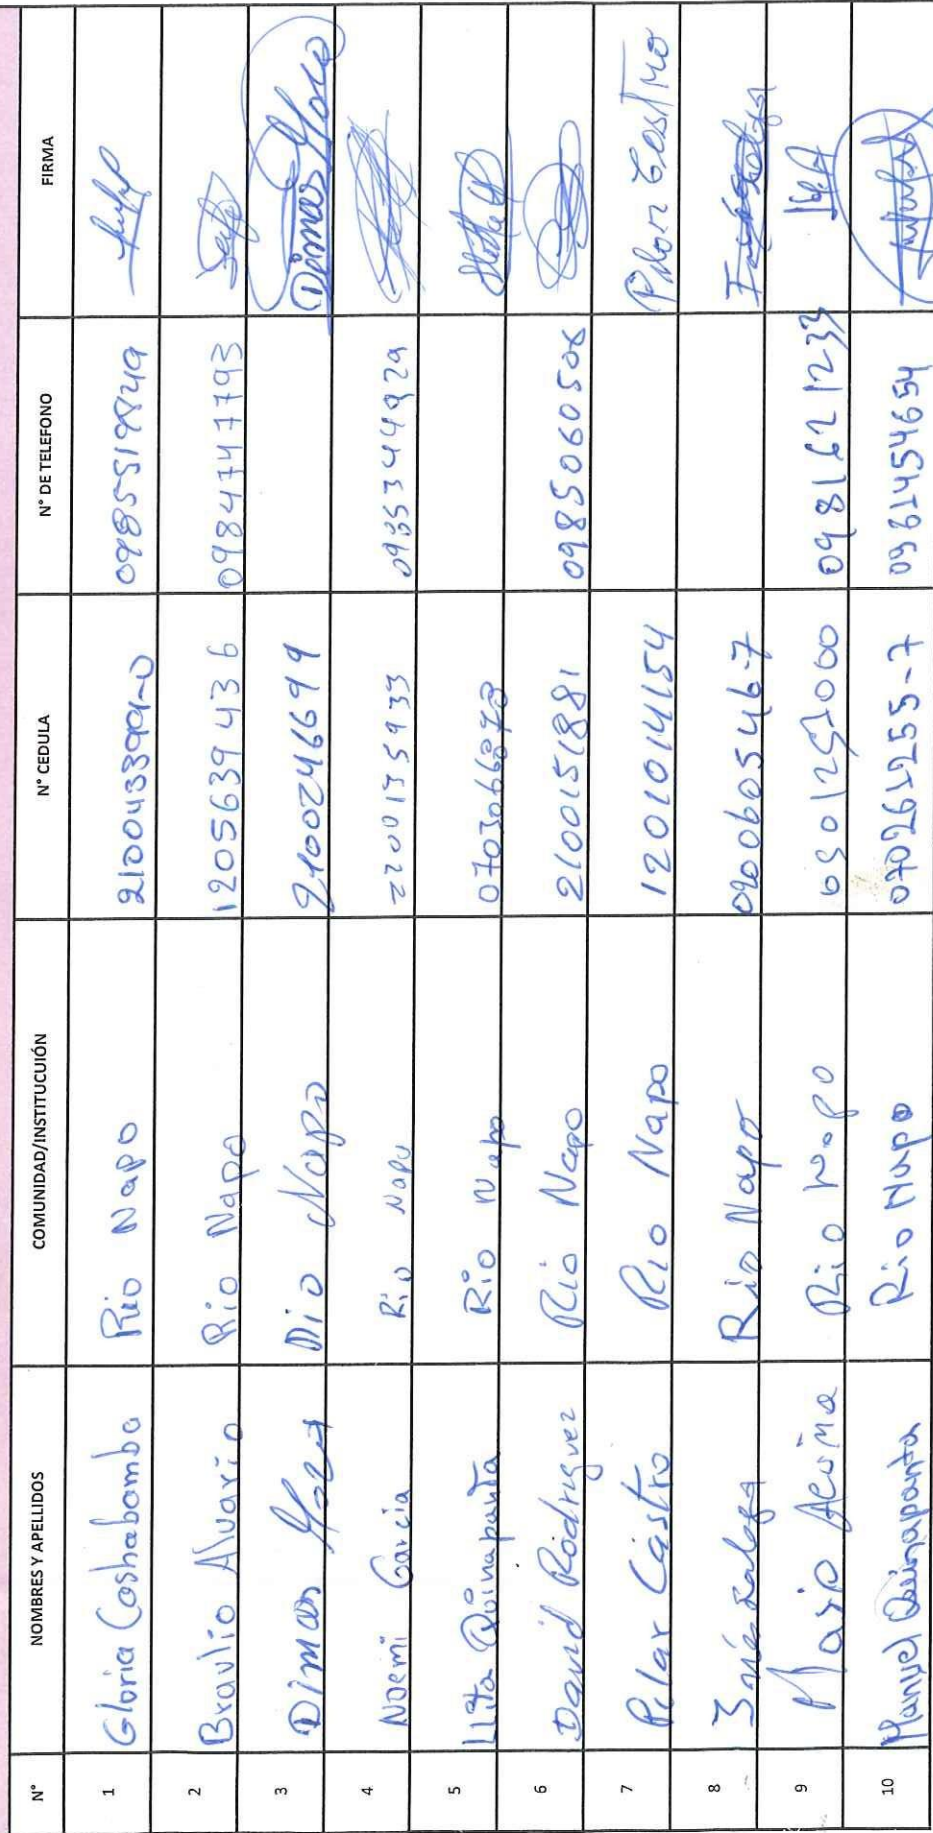 N° NOMBRES Y APELLIDOS COMUNIDAD/INSTITUCUIÓN N° CEDULA N° DE TELEFONO FIRMA
1 Gloria Cashabamba Rio Napo 210043399-0 0985519849
2 Braulio Alvario Rio Napo 1205639436 0984747793
3 Dimas Rio Napo 2100246699 Dimas
4 Noemi Garcia Rio Napo 2200135933 0985344929
5 LLita Quinapanta Rio Napo 0703066873
6 David Rodriguez Rio Napo 2100151881 0985060506
7 Pilar Castro Rio Napo 1201014154 Pilar Castro
8 Rio Napo 020060546-7
9 Mario Acuña Rio Napo 0981621233
10 Manuel Quinapanta Rio Napo 070261255-7 0961454654